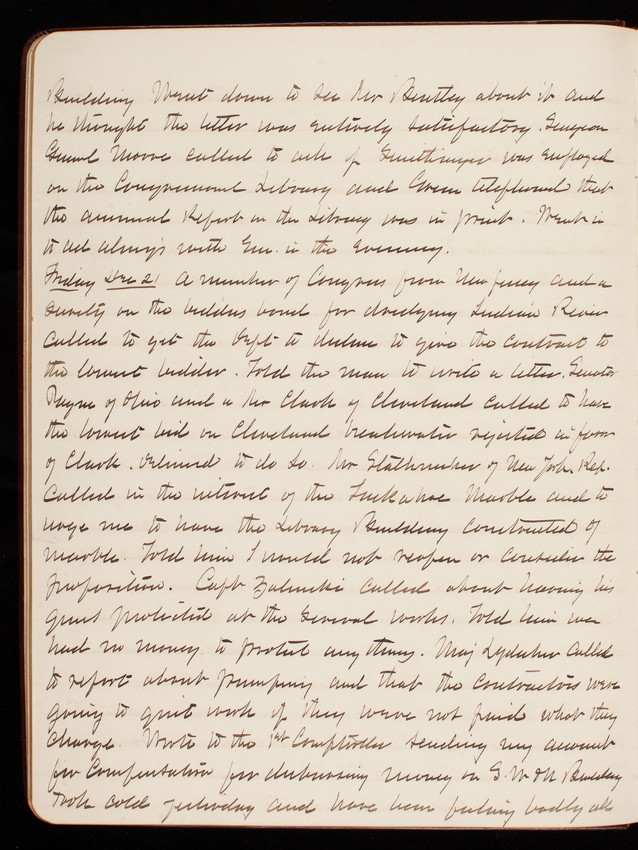 Building Went down to see Mr Bentley about it and
he thought the letter was entirely satisfactory. Surgeon
Genl Moore called to ask if was employed
on the Congressional Library and Green telephoned that
the annual Report on the Library was in print. Went in
to at with Em. in the evening.
Friday Dec 21 A member of Congress from New Jersey and a
surety on the bidders bond for dredging Indian River
called to get the Dept to decline to give the contract to
the lowest bidder. Told the man to write a letter. Senator
Payne of Ohio and a Mr Clark of Cleveland called to have
the lowest bid on Cleveland breakwater rejected in favor
of Clark. Declined to do so. Mr Stahlnecker of New York. Rep.
called in the interest of the Tuckahoe Marble and to
urge me to have the Library Building constructed of
marble. Told him I would not reopen or consider the
proposition. Capt Zalinski called about having his
guns protected at the several works. Told him we
had no money to protect anything. Maj Lydecker called
to report about pumping and that the contractors were
going to quit work if they were not paid what they
charge. Wrote to the 1st Comptroller sending my account
for compensation for disbursing money on S. W & N Building
Took cold yesterday and have been feeling badly all